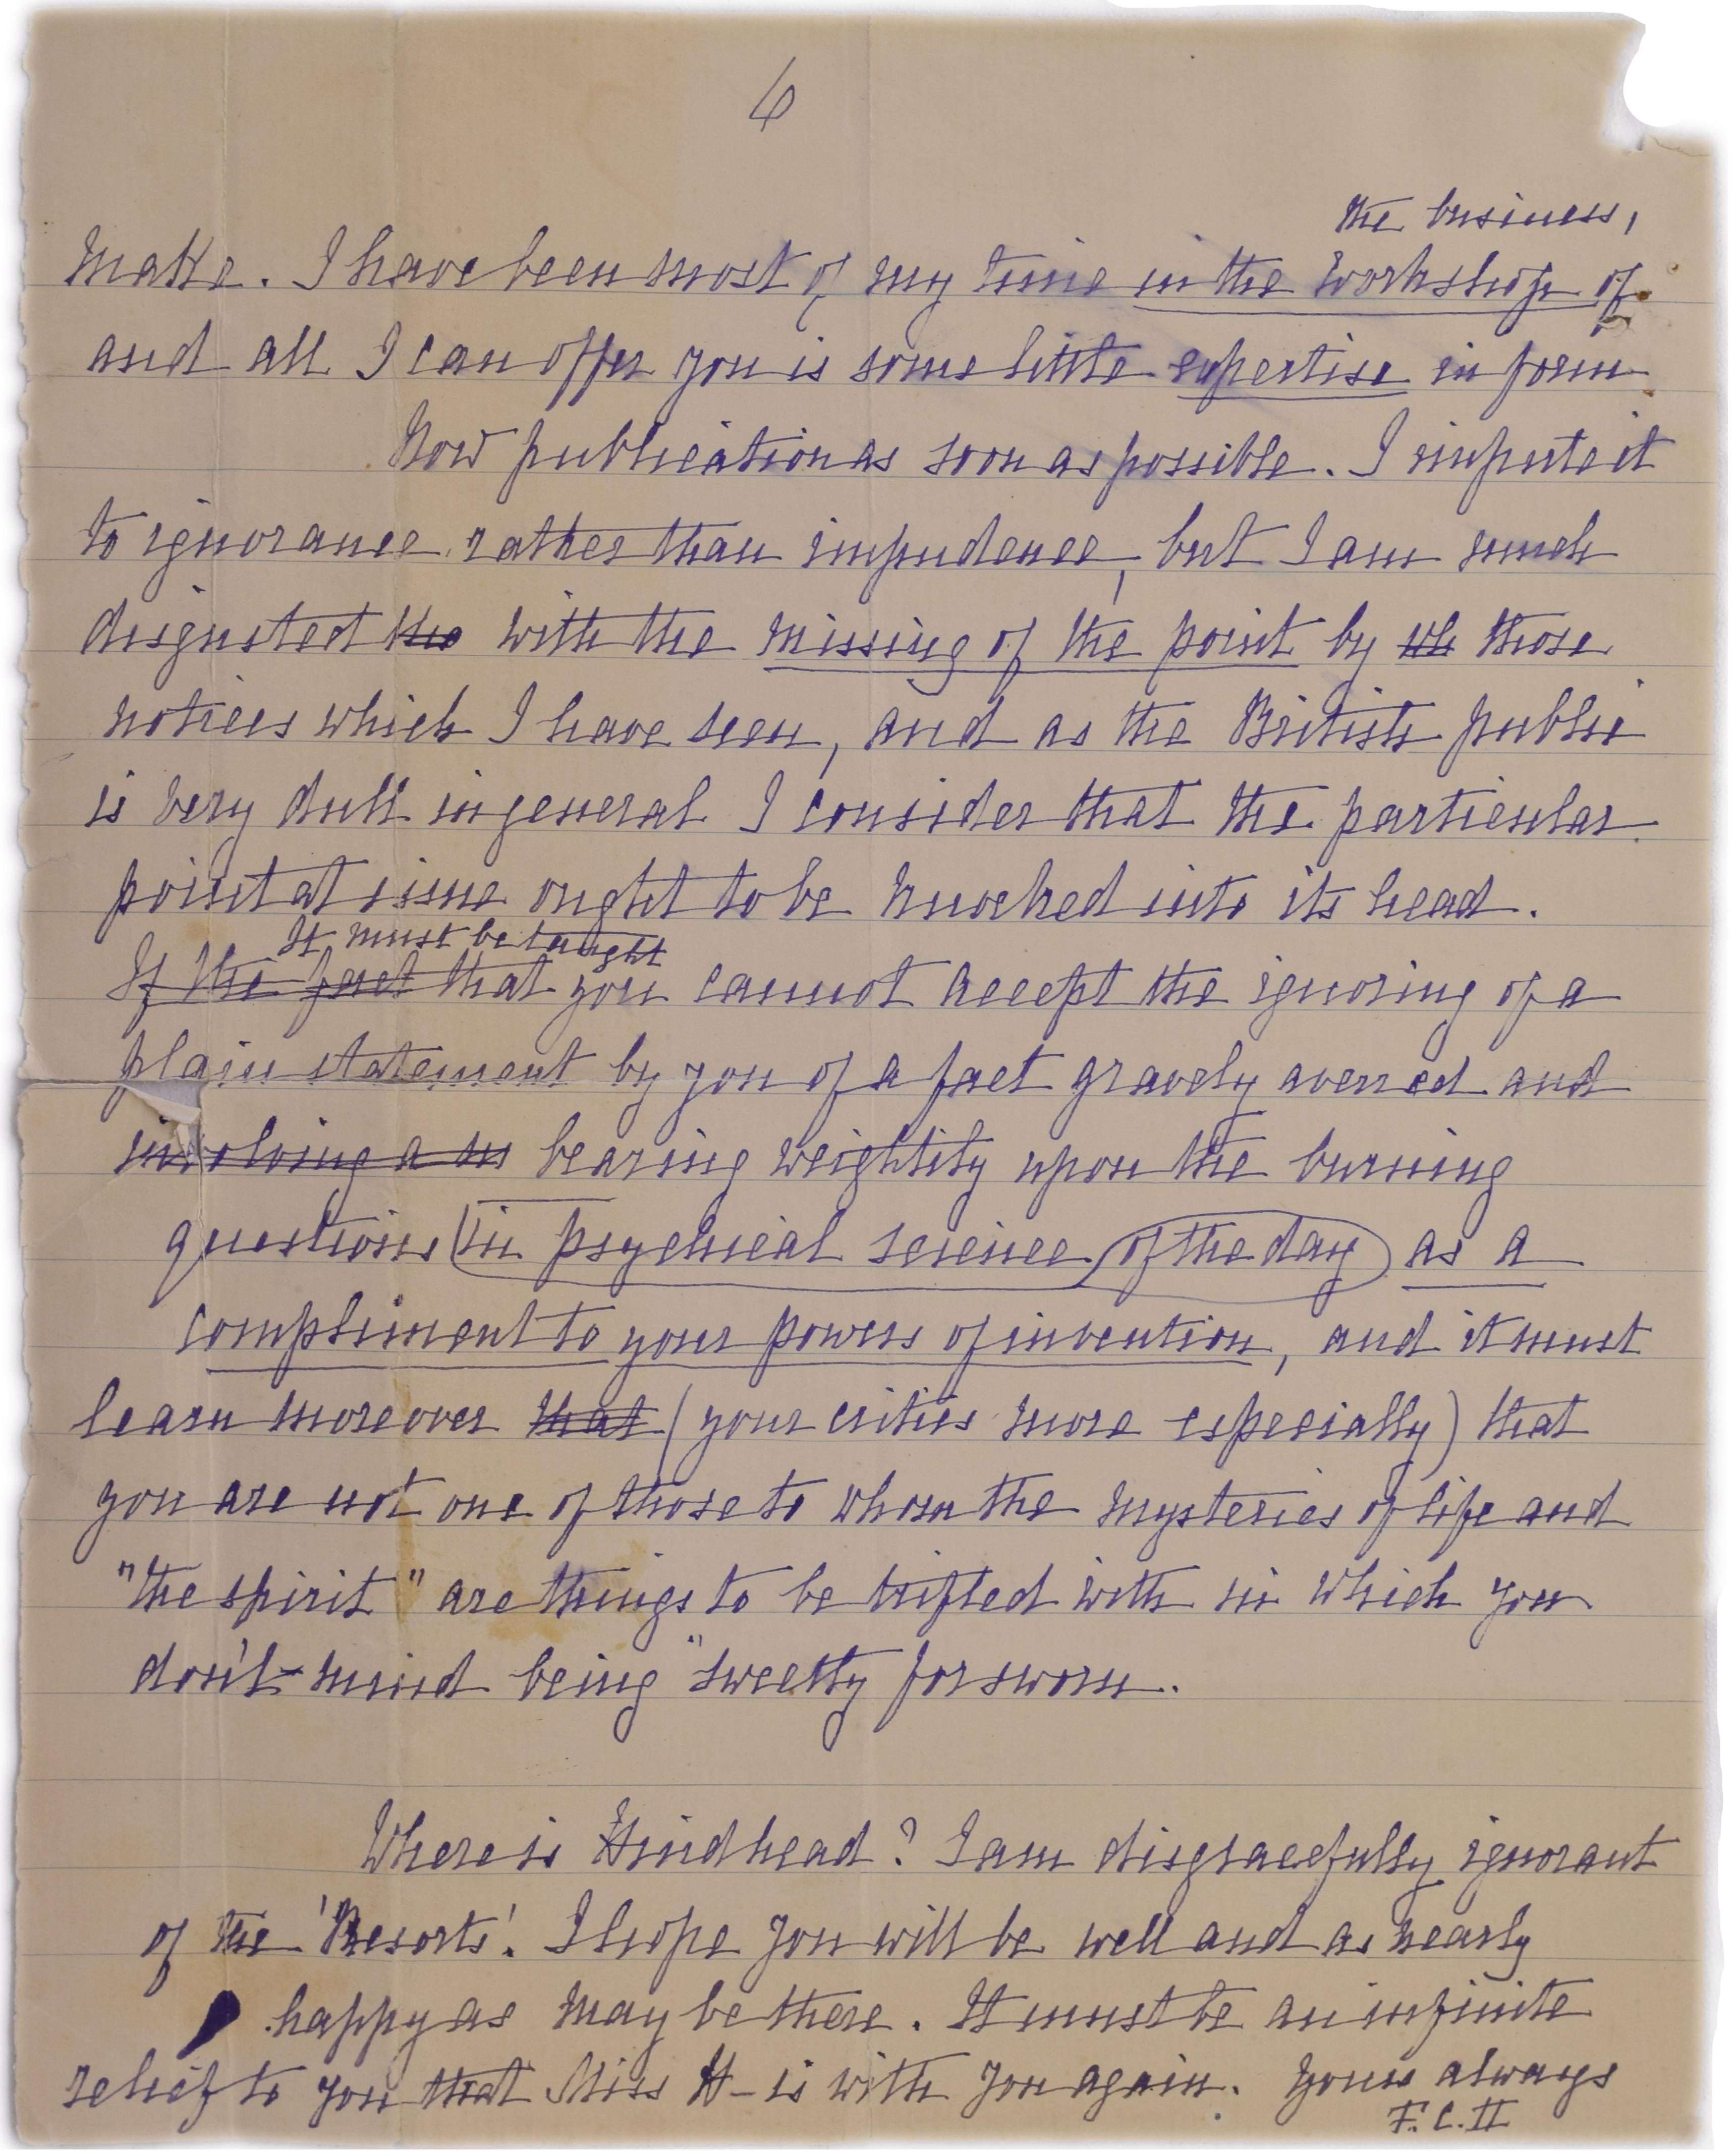 6
the business,
make. I have been most of my time in the workshop of
and all I can offer you is some little expertise in form
Now publication as soon as possible. I impute it
to ignorance rather than impudence, but I am much
disgusted the with the missing of the point by wh those
notices which I have seen, and as the British public
is very dull in general I consider that the particular
point at issue ought to be knocked into its head.
It must be taught
If the fact that you cannot accept the ignoring of a
plain statement by you of a fact gravely averred and
involving a m bearing weightily upon the burning
questions (in psychical science of the day as a
compliment to your powers of invention, and it must
learn moreover that (your critics more especially) that
you are not one of those to whom the mysteries of life and
"the spirit" are things to be trifled with in which you
don't mind being "sweetly forsworn.
Where is Hindhead? I am disgracefully ignorant
of the 'Resorts'. I hope you will be well and as nearly
happy as may be there. It must be an infinite
relief to you that Miss H- is with you again. Yours always
F.C.II